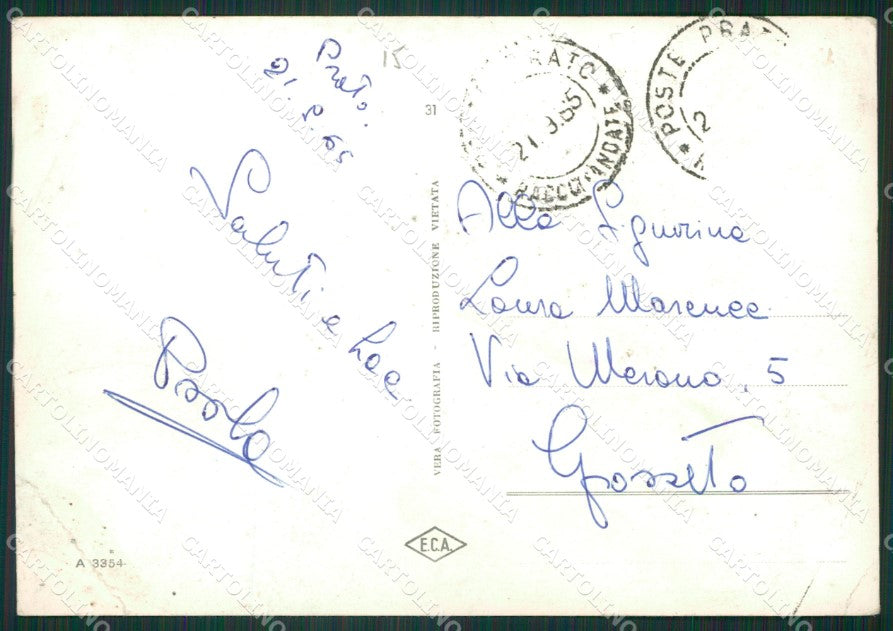 Prato.
21 . 9. 65
15
Saluti e
Paolo
31
VERA FOTOGRAFIA - RIPRODUZIONE VIETATA
PRATO
21.9.65
RACCOMANDATE
POSTE PRAT
12
Alla Signorina
Laura
Via Merano, 5
Grosseto
E.C.A.
A 3354
CARTOLINOMANIA